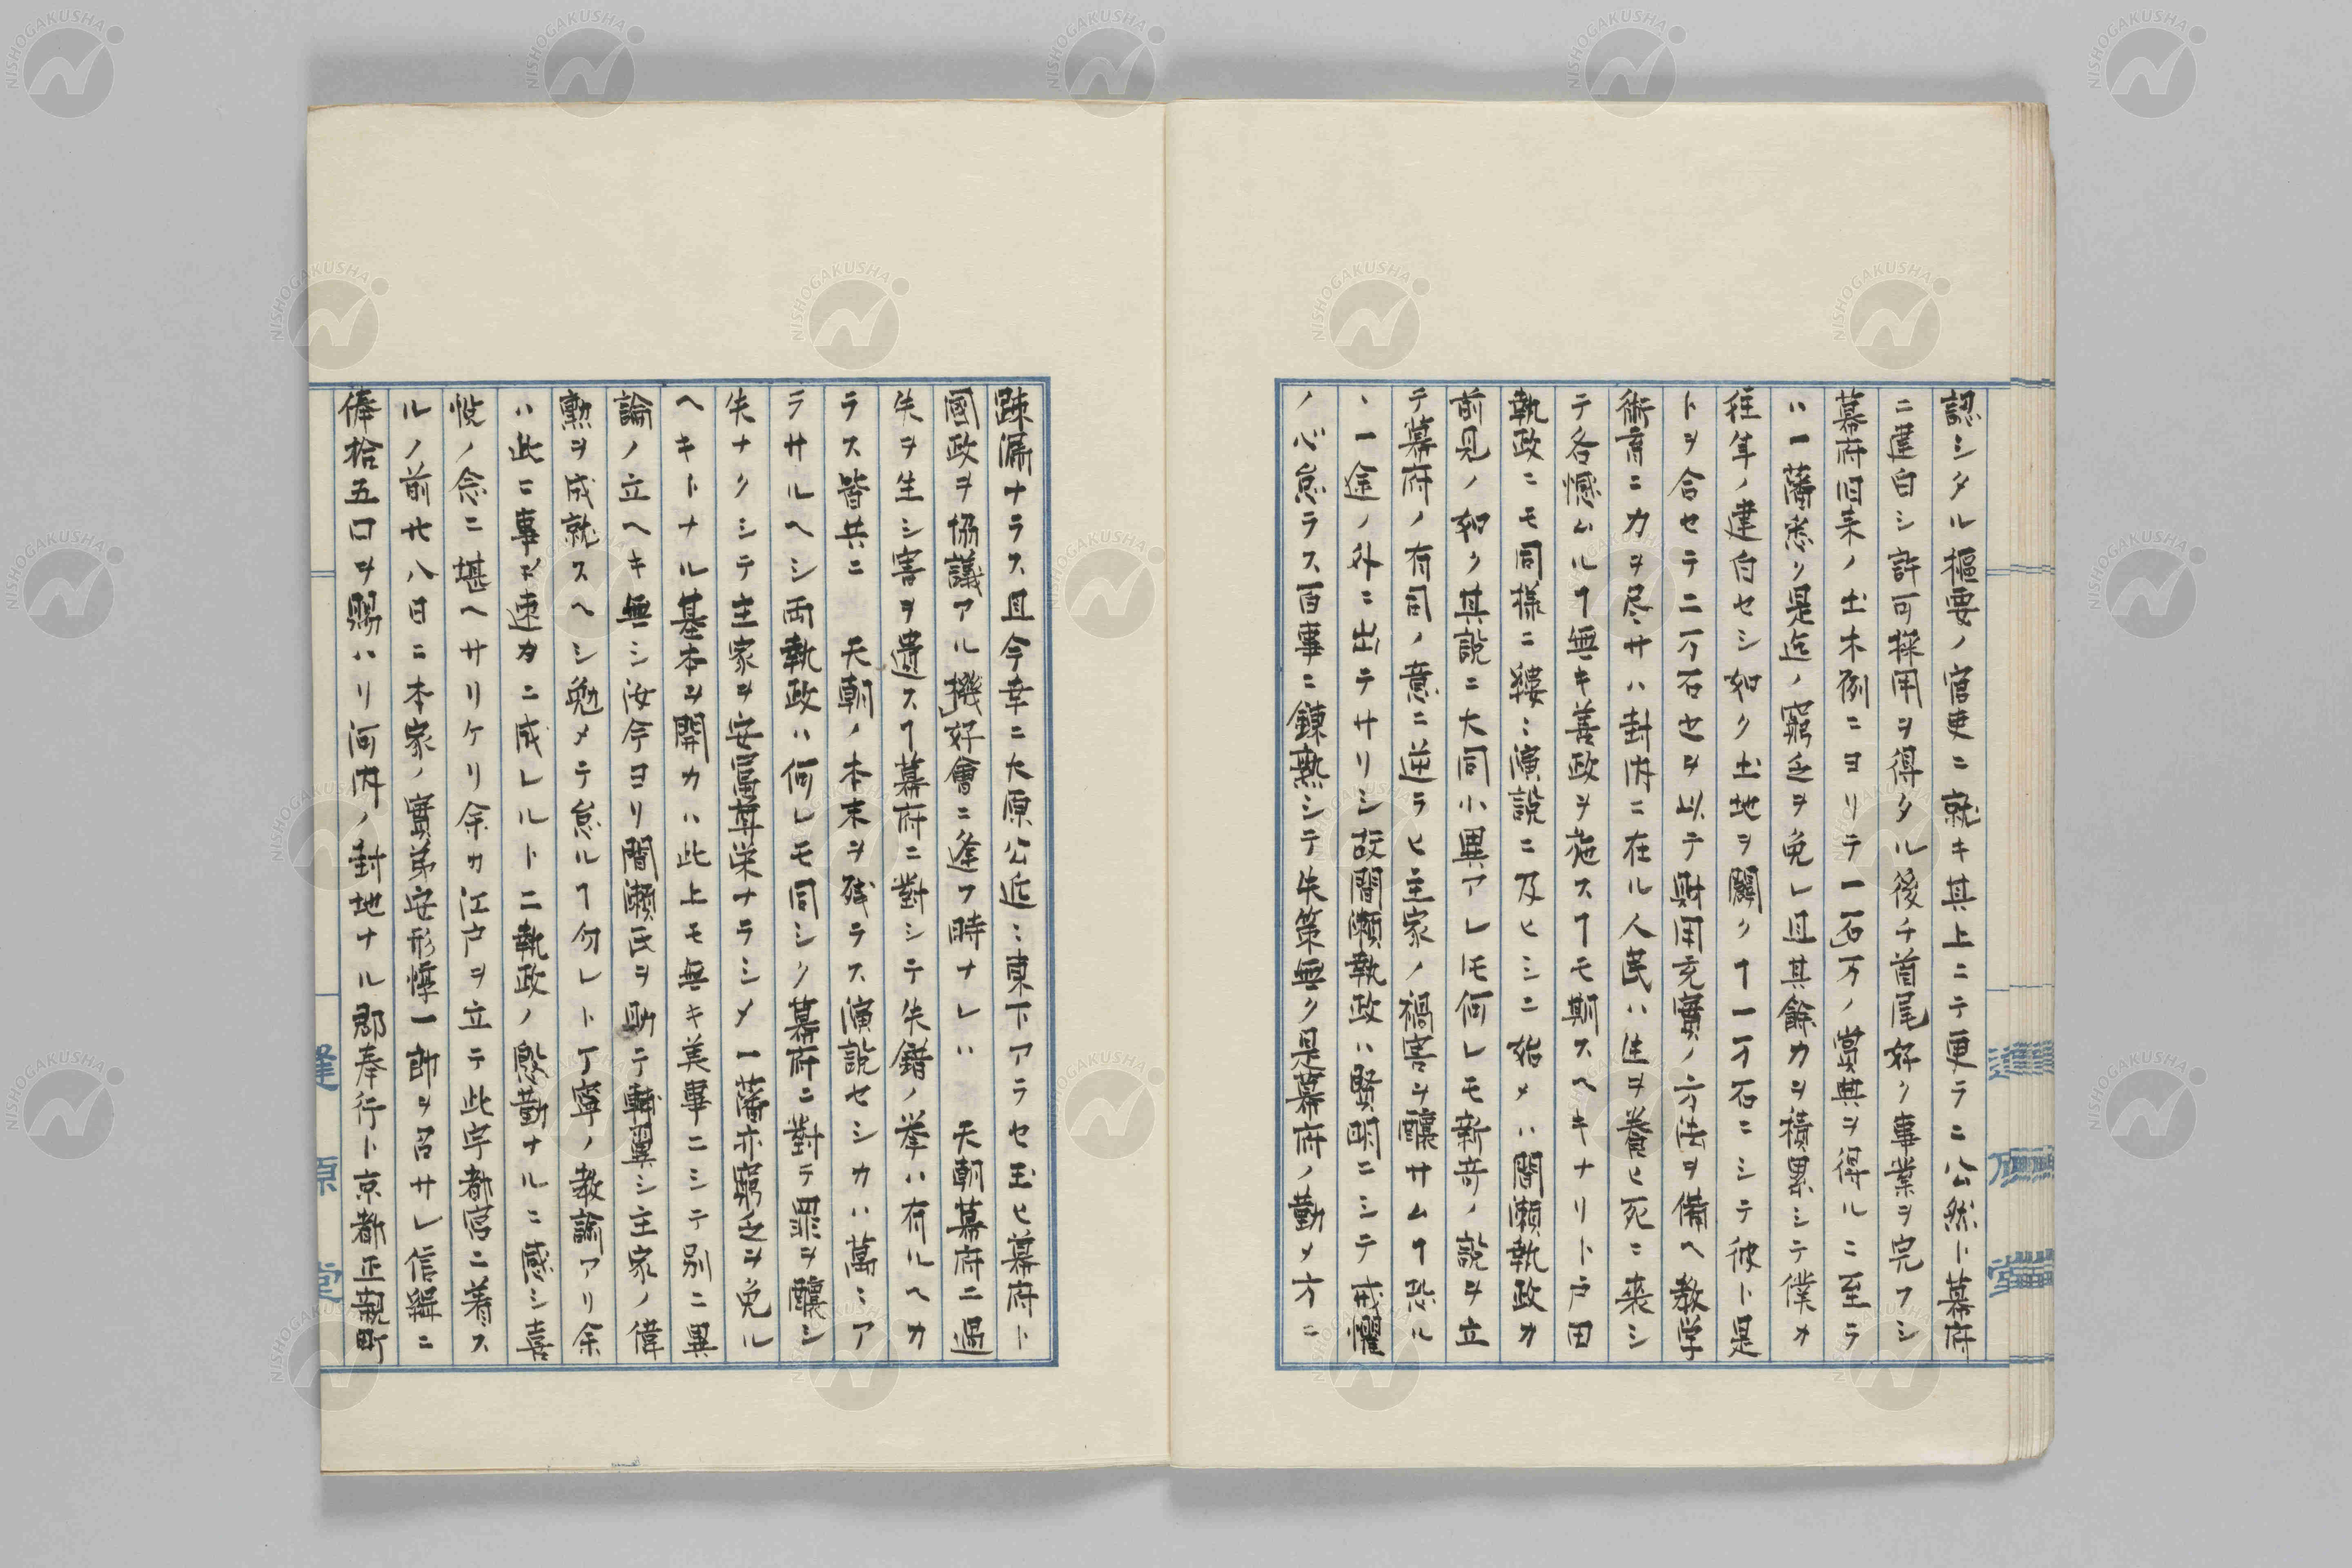 認シタル樞要ノ官吏ニ就キ其上ニテ更ラニ公然ト幕府
ニ建白シ許可採用ヲ得タル後チ首尾好ク事業ヲ完フシ
幕府旧来ノ土木例ニヨリテ一石万ノ賞典ヲ得ルニ至ラ
ハ一藩悉ク是迄ノ窮乏ヲ免レ且其餘力ヲ積累シテ僕カ
往年ノ建白セシ如ク土地ヲ闢クヿ一万石ニシテ彼ト是
トヲ合セテ二万石也ヲ以テ財用充實ノ方法ヲ備ヘ教学
術育ニ力ヲ尽サハ封内ニ在ル人民ハ生ヲ養ヒ死ニ喪シ
テ各憾ムルヿ無キ善政ヲ施スヿモ期スヘキナリト戸田
執政ニモ同様ニ縷〻演説ニ及ヒシニ始メハ間瀬執政カ
前見ノ如ク其説ニ大同小異アレ𪜈何レモ新奇ノ説ヲ立
テ幕府ノ有司ノ意ニ逆ラヒ主家ノ禍害ヲ醸サムヿ恐ル
ヽ一途ノ外ニ出テサリシ故間瀬執政ハ賢明ニシテ戒懼
ノ心怠ラス百事ニ錬熟シテ失策無ク是幕府ノ勤メ方ニ
疎漏ナラス且今幸ニ大原公近〻東下アラセ玉ヒ幕府ト
國政ヲ協議アル機好會ニ逢フ時ナレハ　天朝幕府ニ過
失ヲ生シ害ヲ遺スヿ幕府ニ對シテ失錯ノ挙ハ有ルヘカ
ラス皆共ニ　天朝ノ本末ヲ残ラス演説セシカハ萬〻ア
ラサルヘシ両執政ハ何レモ同シク幕府ニ對テ罪ヲ醸シ
失ナクシテ主家ヲ安富尊栄ナラシメ一藩亦窮乏ヲ免ル
ヘキトナル基本ヲ開カハ此上モ無キ美事ニシテ別ニ異
論ノ立ヘキ無シ汝今ヨリ間瀬氏ヲ助テ輔翼シ主家ノ偉
勲ヲ成就スヘシ勉メテ怠ルヿ勿レト丁寧ノ教諭アリ余
ハ此ニ事ス速カニ成レルト二執政ノ慇勤ナルニ感シ喜
悦ノ念ニ堪ヘサリケリ余カ江戸ヲ立テ此宇都宮ニ着ス
ルノ前廿八日ニ本家ノ實弟安形惇一郎ヲ召サレ信緝ニ
俸拾五口ヲ賜ハリ河内ノ封地ナル郡奉行ト京都正親町
逢原堂